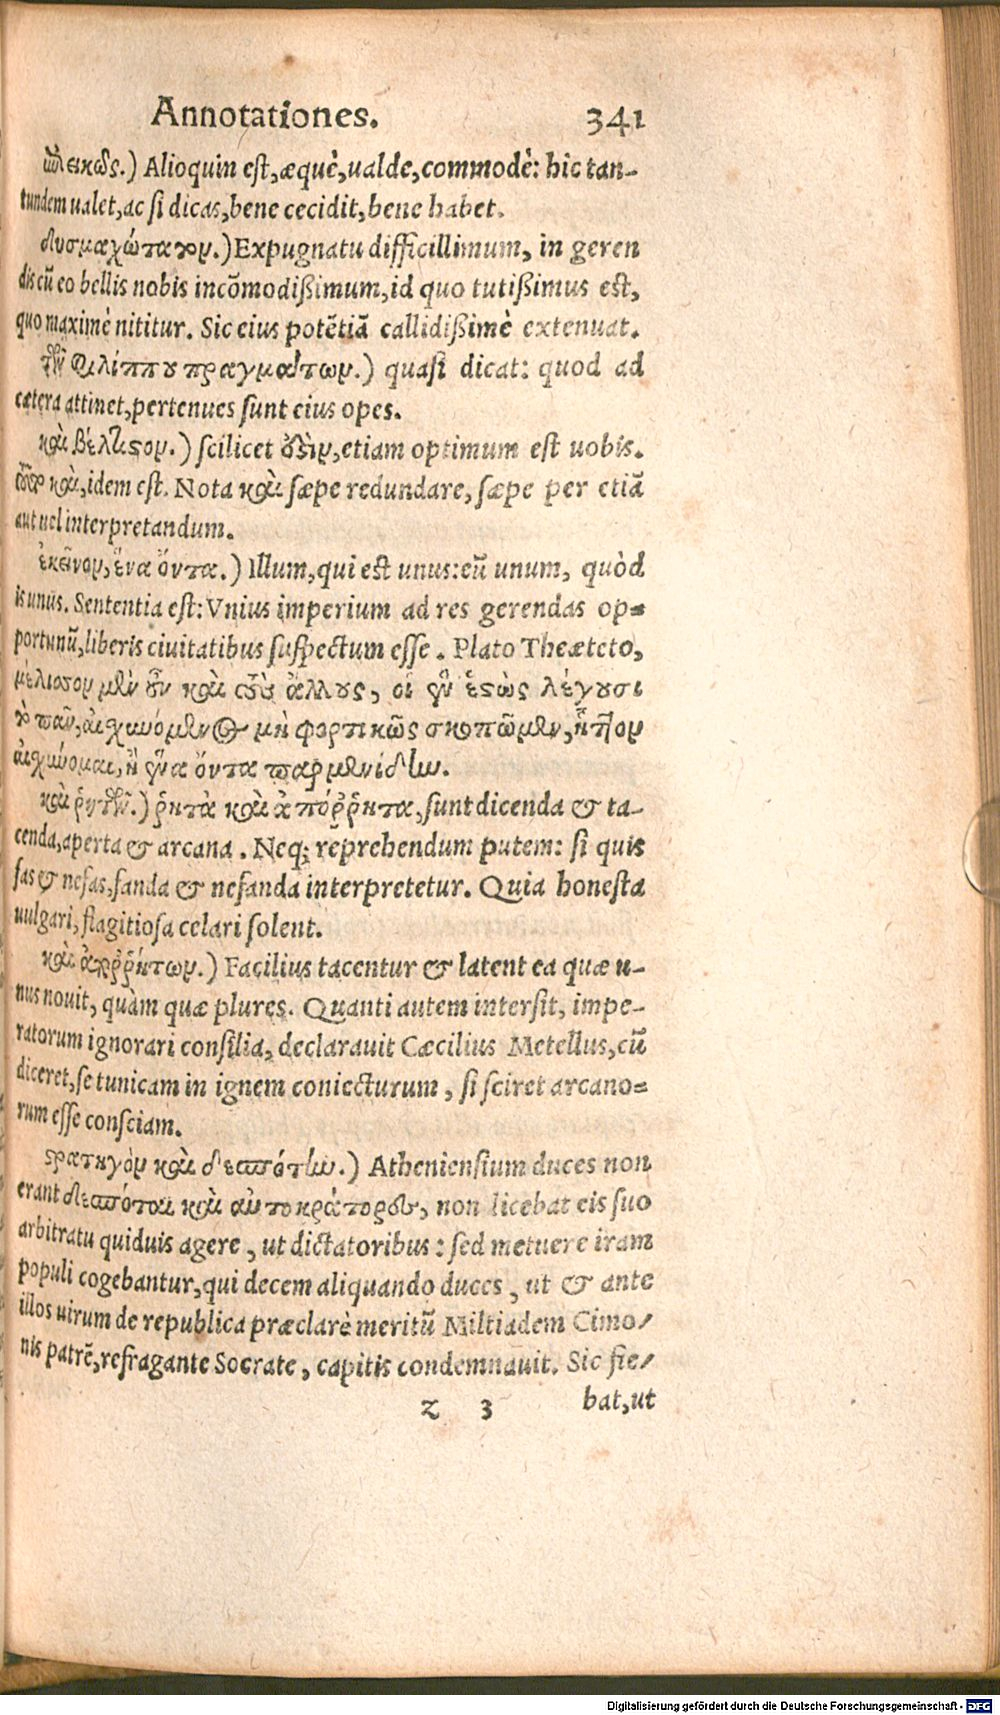 Annotationes. 341
ἐπιεικῶς.) Alioquin est, æquè, ualde, commodè: hic tan-
tundem ualet, ac si dicas, bene cecidit, bene habet.
δυσμαχώτατον.) Expugnatu difficillimum, in geren
dis cū eo bellis nobis incōmodißimum, id quo tutißimus est,
quo maximè nititur. Sic eius potētiā callidißimè extenuat.
τῶν Φιλίππου πραγμάτων.) quasi dicat: quod ad
cætera attinet, pertenues sunt eius opes.
καὶ βέλτιστον.) scilicet ὑμῖν, etiam optimum est uobis.
καὶ, idem est. Nota καὶ sæpe redundare, sæpe per etiā
aut uel interpretandum.
ἐκεῖνον, ἕνα ὄντα.) Illum, qui est unus: eū unum, quòd
is unus. Sententia est: Vnius imperium ad res gerendas op-
portunū, liberis ciuitatibus suspectum esse. Plato Theæteto,
μέλισσον μὲν οὖν καὶ τοὺς ἄλλους, οἳ ἓν ἑστὼς λέγουσι
τὸ πᾶν, αἰσχυνόμενος μὴ φορτικῶς σκοπῶμεν, ἧττον
αἰσχύνομαι, ἢ ἕνα ὄντα παρμενίδην.
καὶ ῥητῶν.) ῥητὰ καὶ ἀπόῤῥητα, sunt dicenda & ta-
cenda, aperta & arcana. Neq; reprehendum putem: si quis
fas & nefas, fanda & nefanda interpretetur. Quia honesta
uulgari, flagitiosa celari solent.
καὶ ἀποῤῥήτων.) Facilius tacentur & latent ea quæ u-
nus nouit, quàm quæ plures. Quanti autem intersit, impe-
ratorum ignorari consilia, declarauit Cæcilius Metellus, cū
diceret, se tunicam in ignem coniecturum, si sciret arcano-
rum esse consciam.
στρατηγὸν καὶ δεσπότην.) Atheniensium duces non
erant δεσπόται καὶ αὐτοκράτορες, non licebat eis suo
arbitratu quiduis agere, ut dictatoribus: sed metuere iram
populi cogebantur, qui decem aliquando duces, ut & ante
illos uirum de republica præclarè meritū Miltiadem Cimo-
nis patrē, refragante Socrate, capitis condemnauit. Sic fie-
z 3 bat, ut
Digitalisierung gefördert durch die Deutsche Forschungsgemeinschaft - DFG